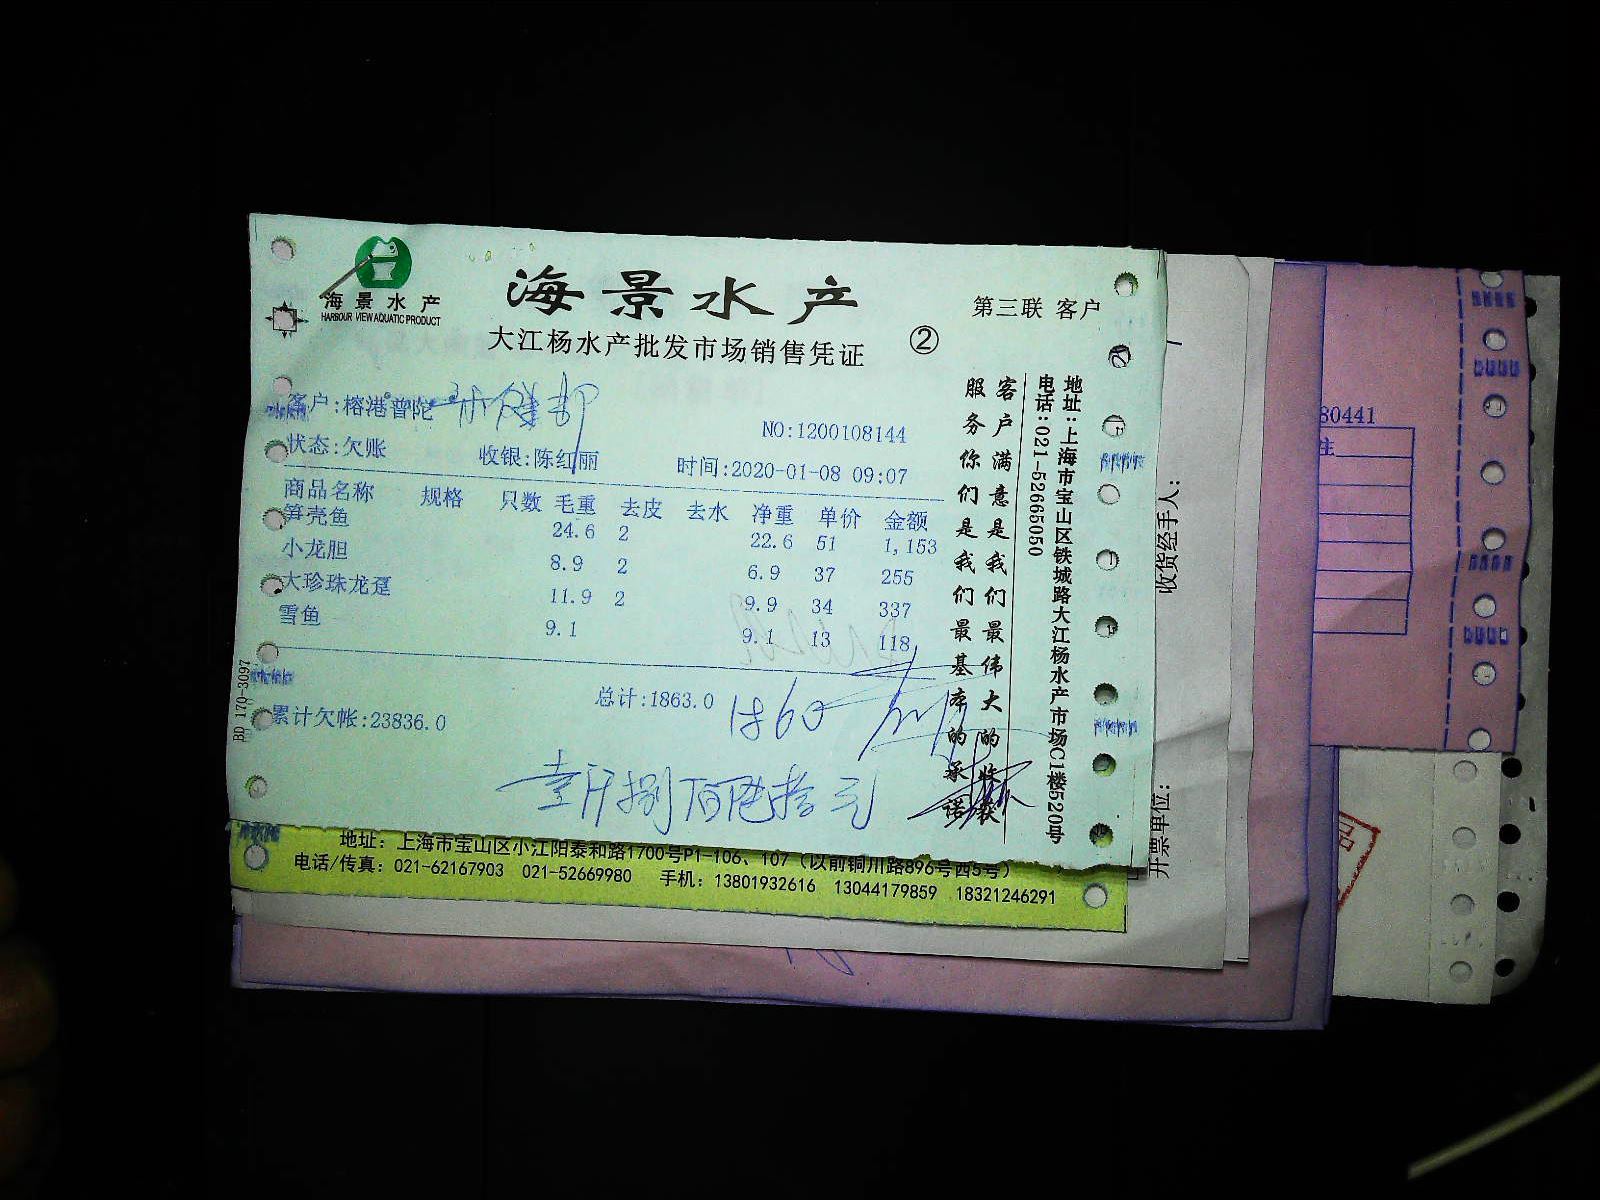 海景水产
HARBOUR VIEW AQUATIC PRODUCT
海景水产
大江杨水产批发市场销售凭证
②
第三联 客户
客户:榕港普陀
NO:1200108144
状态:欠账 收银:陈红丽 时间:2020-01-08 09:07
商品名称 规格 只数 毛重 去皮 去水 净重 单价 金额
笋壳鱼 24.6 2 22.6 51 1,153
小龙胆 8.9 2 6.9 37 255
大珍珠龙趸 11.9 2 9.9 34 337
雪鱼 9.1 9.1 13 118
总计:1863.0
1860
累计欠帐:23836.0
壹仟捌佰陆拾元
客户满意是我们最伟大的收获
服务你们是我们最基本的承诺
地址:上海市宝山区铁城路大江杨水产市场C1楼520号
电话:021-52665050
BD 170-3097
地址:上海市宝山区小江阳泰和路1700号P1-106、107(以前铜川路896号西5号)
电话/传真:021-62167903 021-52669980 手机:13801932616 13044179859 18321246291
收货经手人:
开票单位:
80441
注